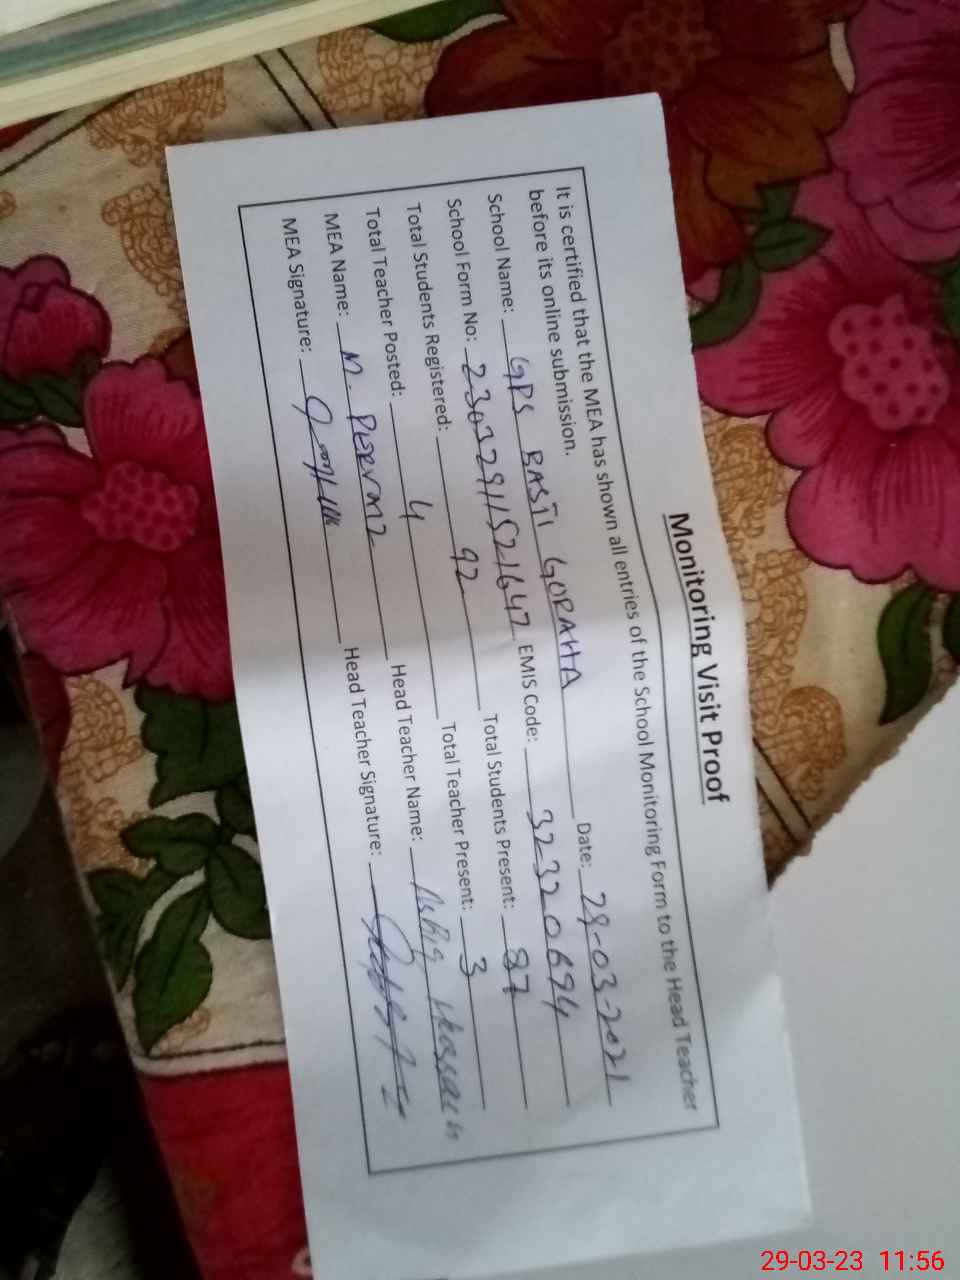 Monitoring Visit Proof
It is certified that the MEA has shown all entries of the School Monitoring Form to the Head Teacher
before its online submission.
School Name: GPS BASTI GORAHA Date: 29-03-2021
School Form No: 23032911521647 EMIS Code: 32320694
Total Students Registered: 92 Total Students Present: 87
Total Teacher Posted: 4 Total Teacher Present: 3
MEA Name: M. PERVAIZ Head Teacher Name: Ashiq
MEA Signature: Head Teacher Signature:
29-03-23 11:56